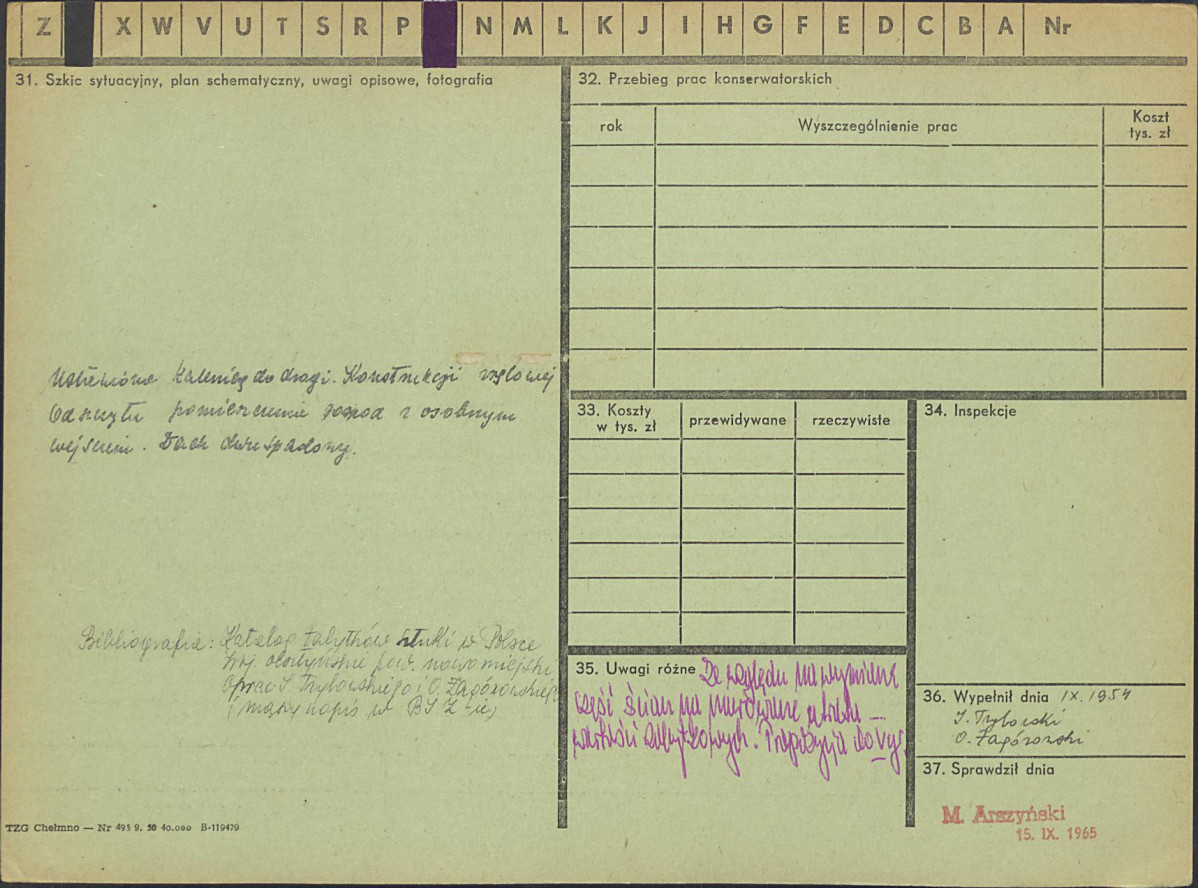 Z X W V U T S R P N M L K J I H G F E D C B A Nr
31. Szkic sytuacyjny, plan schematyczny, uwagi opisowe, fotografia
Kalenicą do drogi. Konstrukcji węgłowej
Od szczytu pomieszczenie gospod z osobnym
wejściem. Dach dwuspadowy.
Bibliografia: Katalog Zabytków Sztuki w Polsce
woj. olsztyńskie pow. nowomiejski
Oprac J. Frycz i O. Zagórowskiego
(maszynopis w
TZG Chełmno — Nr 495 9. 58 40.000 B-119479
32. Przebieg prac konserwatorskich
rok
Wyszczególnienie prac
Koszt
tys. zł
33. Koszty
w tys. zł
przewidywane
rzeczywiste
34. Inspekcje
35. Uwagi różne Ze względu na wymianę
część ścian na murowane utrata
wartości zabytkowych. Propozycja do
36. Wypełnił dnia IX. 1954
O. Zagórowski
37. Sprawdził dnia
M. Arszyński
15. IX. 1965